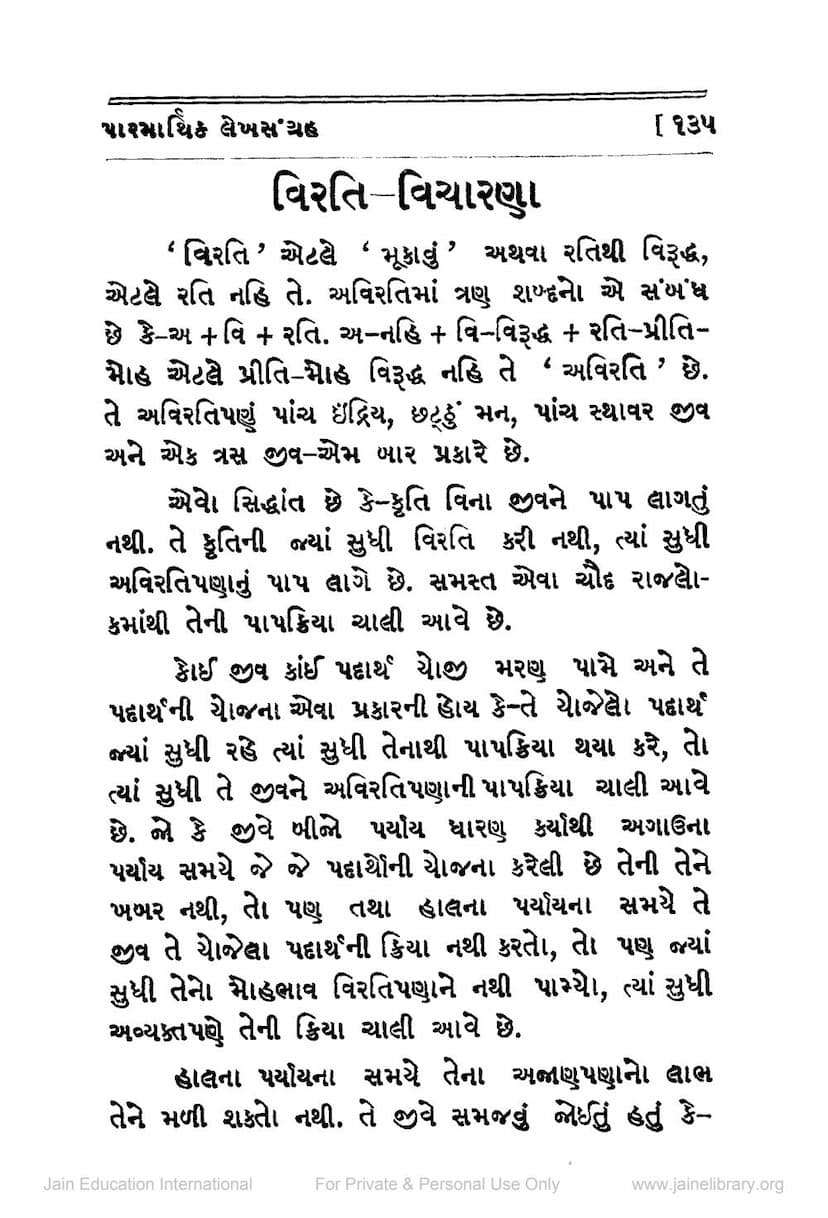 પારમાર્થિક લેખસંગ્રહ [ ૧૩૫
વિરતિ–વિચારણા
‘ વિરતિ ’ એટલે ‘ મૂકાવું ’ અથવા રતિથી વિરૂદ્ધ,
એટલે રતિ નહિ તે. અવિરતિમાં ત્રણ શબ્દનો એ સંબંધ
છે કે–અ + વિ + રતિ. અ–નહિ + વિ–વિરૂદ્ધ + રતિ–પ્રીતિ–
મોહ એટલે પ્રીતિ–મોહ વિરૂદ્ધ નહિ તે ‘ અવિરતિ ’ છે.
તે અવિરતિપણું પાંચ ઇંદ્રિય, છટ્ઠું મન, પાંચ સ્થાવર જીવ
અને એક ત્રસ જીવ–એમ બાર પ્રકારે છે.
એવો સિદ્ધાંત છે કે–કૃતિ વિના જીવને પાપ લાગતું
નથી. તે કૃતિની જ્યાં સુધી વિરતિ કરી નથી, ત્યાં સુધી
અવિરતિપણાનું પાપ લાગે છે. સમસ્ત એવા ચૌદ રાજલો–
કમાંથી તેની પાપક્રિયા ચાલી આવે છે.
કોઈ જીવ કાંઈ પદાર્થ યોજી મરણ પામે અને તે
પદાર્થની યોજના એવા પ્રકારની હોય કે–તે યોજેલો પદાર્થ
જ્યાં સુધી રહે ત્યાં સુધી તેનાથી પાપક્રિયા થયા કરે, તો
ત્યાં સુધી તે જીવને અવિરતિપણાની પાપક્રિયા ચાલી આવે
છે. જો કે જીવે બીજો પર્યાય ધારણ કર્યાથી અગાઉના
પર્યાય સમયે જે જે પદાર્થોની યોજના કરેલી છે તેની તેને
ખબર નથી, તો પણ તથા હાલના પર્યાયના સમયે તે
જીવ તે યોજેલા પદાર્થની ક્રિયા નથી કરતો, તો પણ જ્યાં
સુધી તેનો મોહભાવ વિરતિપણાને નથી પામ્યો, ત્યાં સુધી
અવ્યક્તપણે તેની ક્રિયા ચાલી આવે છે.
હાલના પર્યાયના સમયે તેના અજાણપણાનો લાભ
તેને મળી શકતો નથી. તે જીવે સમજવું જોઈતું હતું કે–
Jain Education International For Private & Personal Use Only www.jainelibrary.org